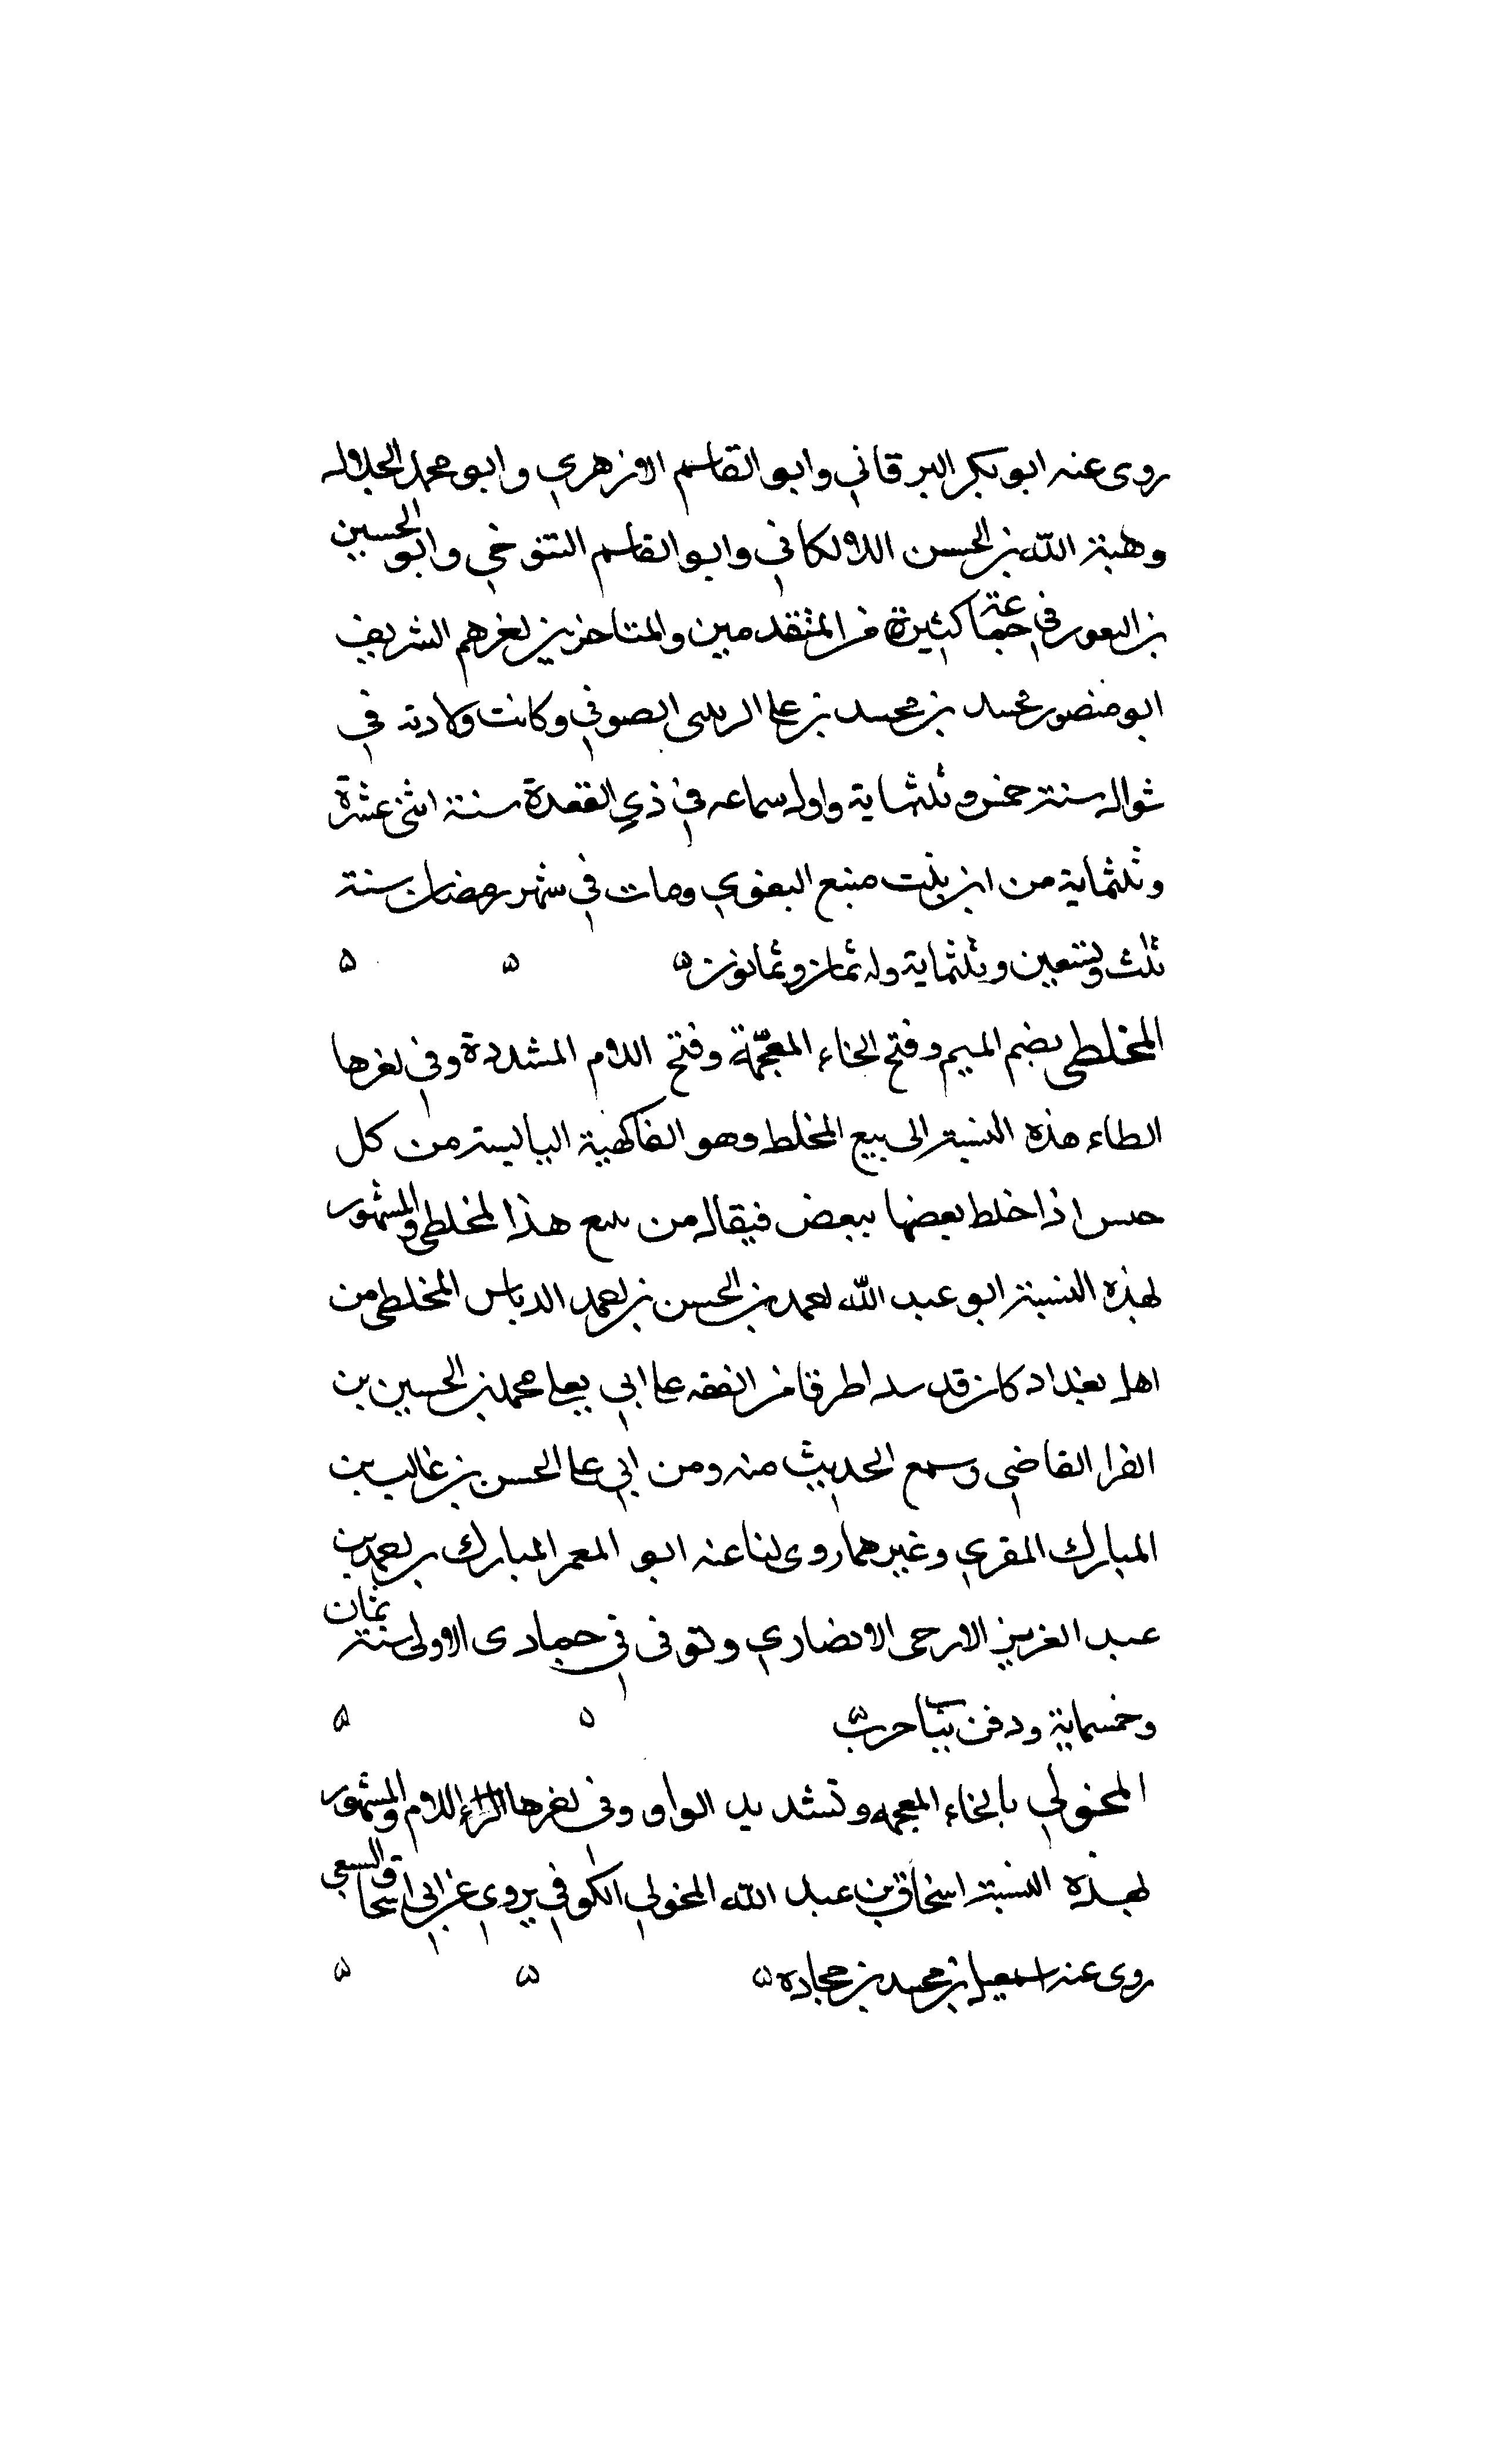 روى عنه ابو بكر البرقاني وابو القاسم الازهري وابو محمد الخلال
وهبة الله بن الحسن اللالكاني وابو القاسم التنوخي وابو الحسين
بن النقور في جماعة كثيرة من المتقدمين والمتاخرين اخرهم الشريف
ابو منصور محمد بن محمد بن علي الزينبي الصوفي وكانت ولادته في
شوال سنة خمس وثلثماية واول سماعه في ذي القعدة سنة اثنى عشرة
وثلثماية من ابن بنت منيع البغوي ومات في شهر رمضان سنة
ثلث وتسعين وثلثماية وله ثمان وثمانون ه ه ه
المخلطي بضم الميم وفتح الخاء المعجمة وفتح اللام المشددة وفي اخرها
الطاء هذه النسبة الى بيع المخلط وهو الفاكهية اليابسة من كل
جنس اذا خلط بعضها ببعض فيقال من بيع هذا المخلطي والمشهور
بهذه النسبة ابو عبد الله احمد بن الحسن بن احمد الدباس المخلطي من
اهل بغداد كان قد طرفا من الفقه على ابي يعلى محمد بن الحسين بن
الفرا القاضي وسمع الحديث منه ومن ابي علي الحسن بن غالب بن
المبارك المقري وغيرهما روى لنا عنه ابو المعمر المبارك بن احمد بن
عبد العزيز الازجى الانصاري وتوفى في جمادى الاولى سنة ثمان
وخمسماية ودفن بباب حرب ه ه ه
المخولي بالخاء المعجمه وتشديد الواو وفي اخرها اللام والمشهور
بهذه النسبة اسحاق بن عبد الله المخولي الكوفي يروي عن ابي اسحاق السبيعي
روى عنه اسمعيل بن محمد بن جحاده ه ه ه